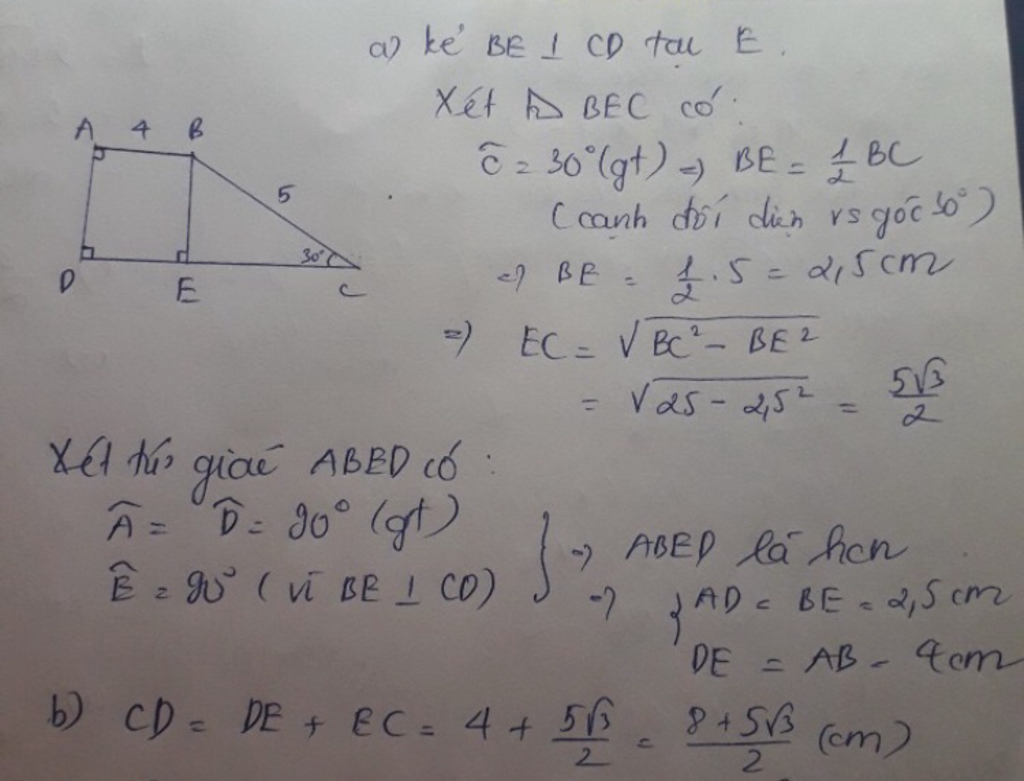 a) kẻ BE ⊥ CD tại E.
Xét △ BEC có:
Ĉ = 30° (gt) => BE = 1/2 BC
(cạnh đối diện vs góc 30°)
=> BE = 1/2 . 5 = 2,5 cm
=> EC = √(BC² - BE²)
= √(25 - 2,5²) = 5√3/2
A 4 B
5
30°
D E C
Xét tứ giác ABED có:
Â = D̂ = 90° (gt)
Ê = 90° (vì BE ⊥ CD)
} => ABED là hcn
=> { AD = BE = 2,5 cm
DE = AB = 4 cm
b) CD = DE + EC = 4 + 5√3/2 = (8 + 5√3)/2 (cm)